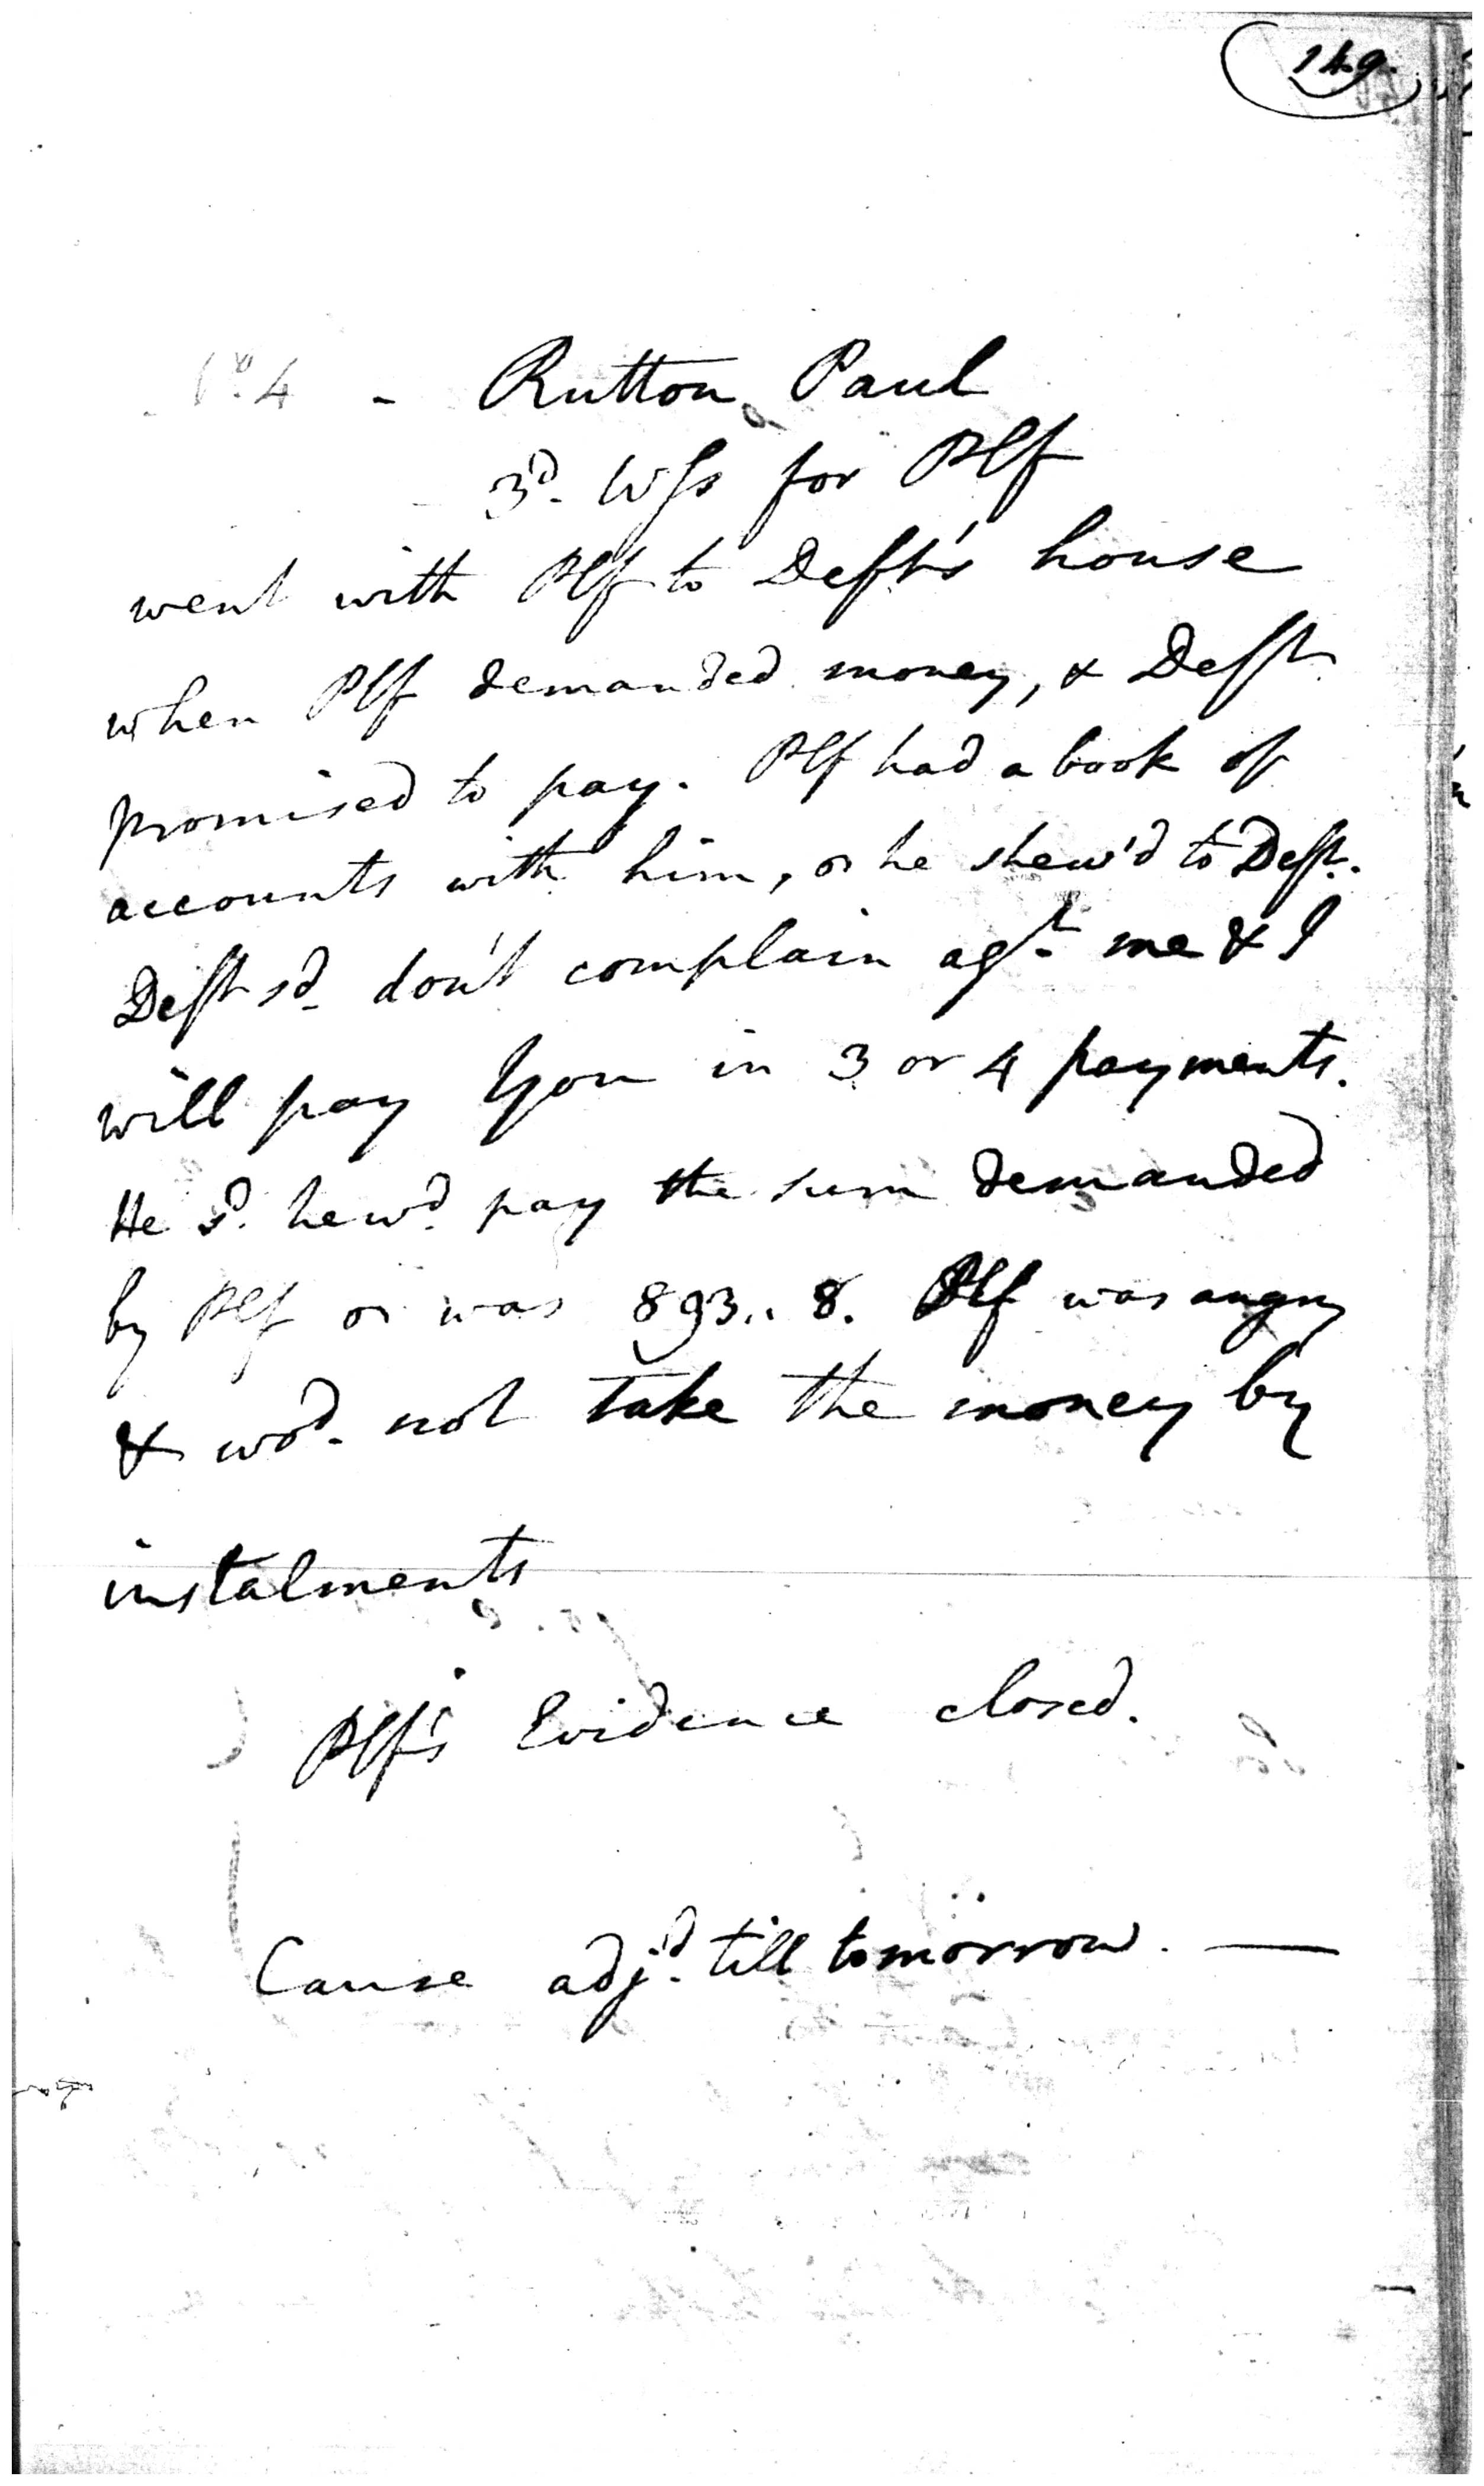 149.
No. 4 - Rutton Paul
3d. Wss for Plf
went with Plf to Deft's house
when Plf demanded money, & Deft
promised to pay. Plf had a book of
accounts with him, he shew'd to Deft.
Deft sd. don't complain agt. me & I
will pay you in 3 or 4 payments.
He sd. he wd. pay the sum demanded
by Plf was 893.. 8. Plf was angry
& wod. not take the money by
instalments
Plf's Evidence closed.
Cause adjd. till tomorrow. —